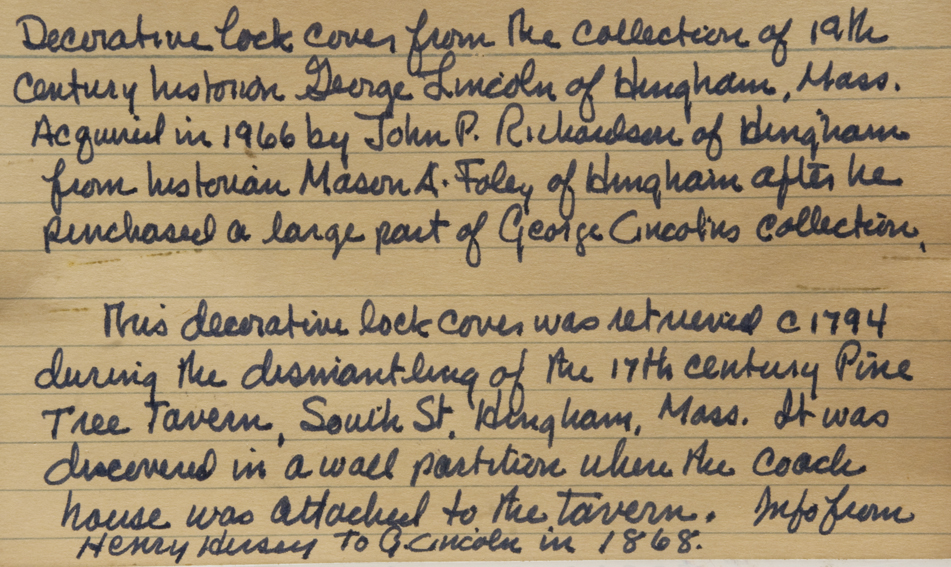 Decorative lock cover from the collection of 19th
century historian George Lincoln of Hingham, Mass.
Acquired in 1966 by John P. Richardson of Hingham
from historian Mason A. Foley of Hingham after he
purchased a large part of George Lincolns collection.
This decorative lock cover was retrieved c 1794
during the dismantling of the 17th century Pine
Tree Tavern, South St, Hingham, Mass. It was
discovered in a wall partition where the coach
house was attached to the tavern. Info from
Henry Hersey to G. Lincoln in 1868.